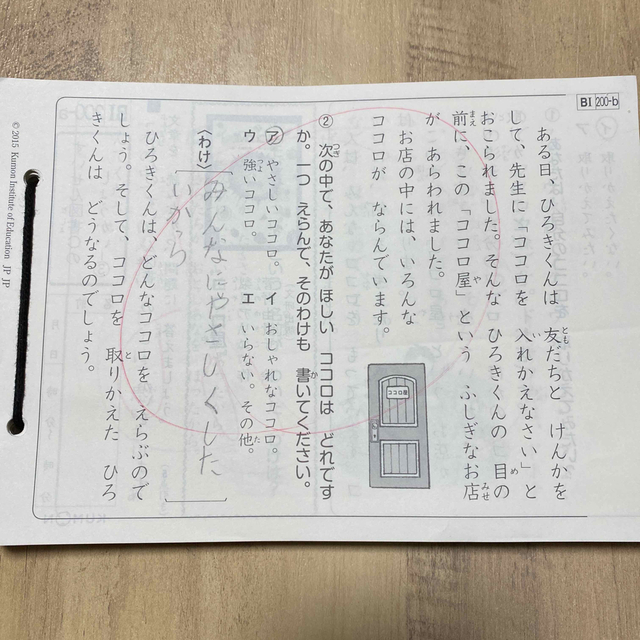 BI 200-b
ある日、ひろきくんは 友だちと けんかを
して、先生に「ココロを 入れかえなさい」と
おこられました。そんな ひろきくんの 目の
前に、この「ココロ屋」という ふしぎなお店
が あらわれました。
お店の中には、いろんな
ココロが ならんでいます。
ココロ屋
② 次の中で、あなたが ほしい ココロは どれです
か。一つ えらんで、そのわけも 書いてください。
ア やさしいココロ。 イ おしゃれなココロ。
ウ 強いココロ。 エ いらない。その他。
〈わけ〉
みんなにやさしくした
いから
ひろきくんは、どんなココロを えらぶので
しょう。そして、ココロを 取りかえた ひろ
きくんは どうなるのでしょう。
© 2015 Kumon Institute of Education JP JP